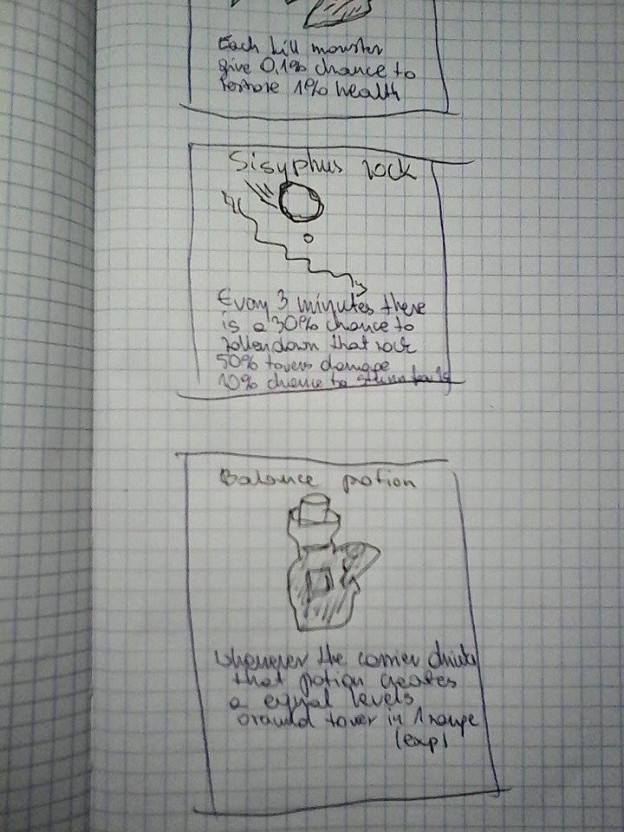 Each kill monster
give 0,1% chance to
restore 1% health
Sisyphus rock
Every 3 minutes there
is a 30% chance to
rollendown that rock
50% towers damage
10% chance to stunn for 1s
Balance potion
Whenever the carrier drinks
that potion creates
a equal levels
around tower in 1 range
(exp)